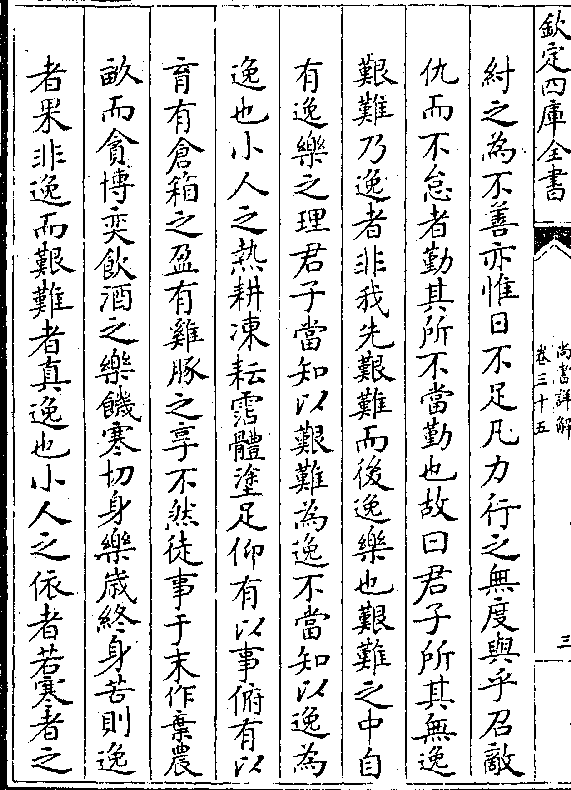 欽定四庫全書
尚書詳解
卷三十五
三
紂之為不善亦惟日不足凡力行之無度與乎召敵
仇而不怠者勤其所不當勤也故曰君子所其無逸
艱難乃逸者非我先艱難而後逸樂也艱難之中自
有逸樂之理君子當知以艱難為逸不當知以逸為
逸也小人之熱耕凍耘霑體塗足仰有以事俯有以
育有倉箱之盈有雞豚之享不然徒事于末作棄農
畝而貪博奕飲酒之樂饑寒切身樂歲終身苦則逸
者果非逸而艱難者真逸也小人之依者若寒者之